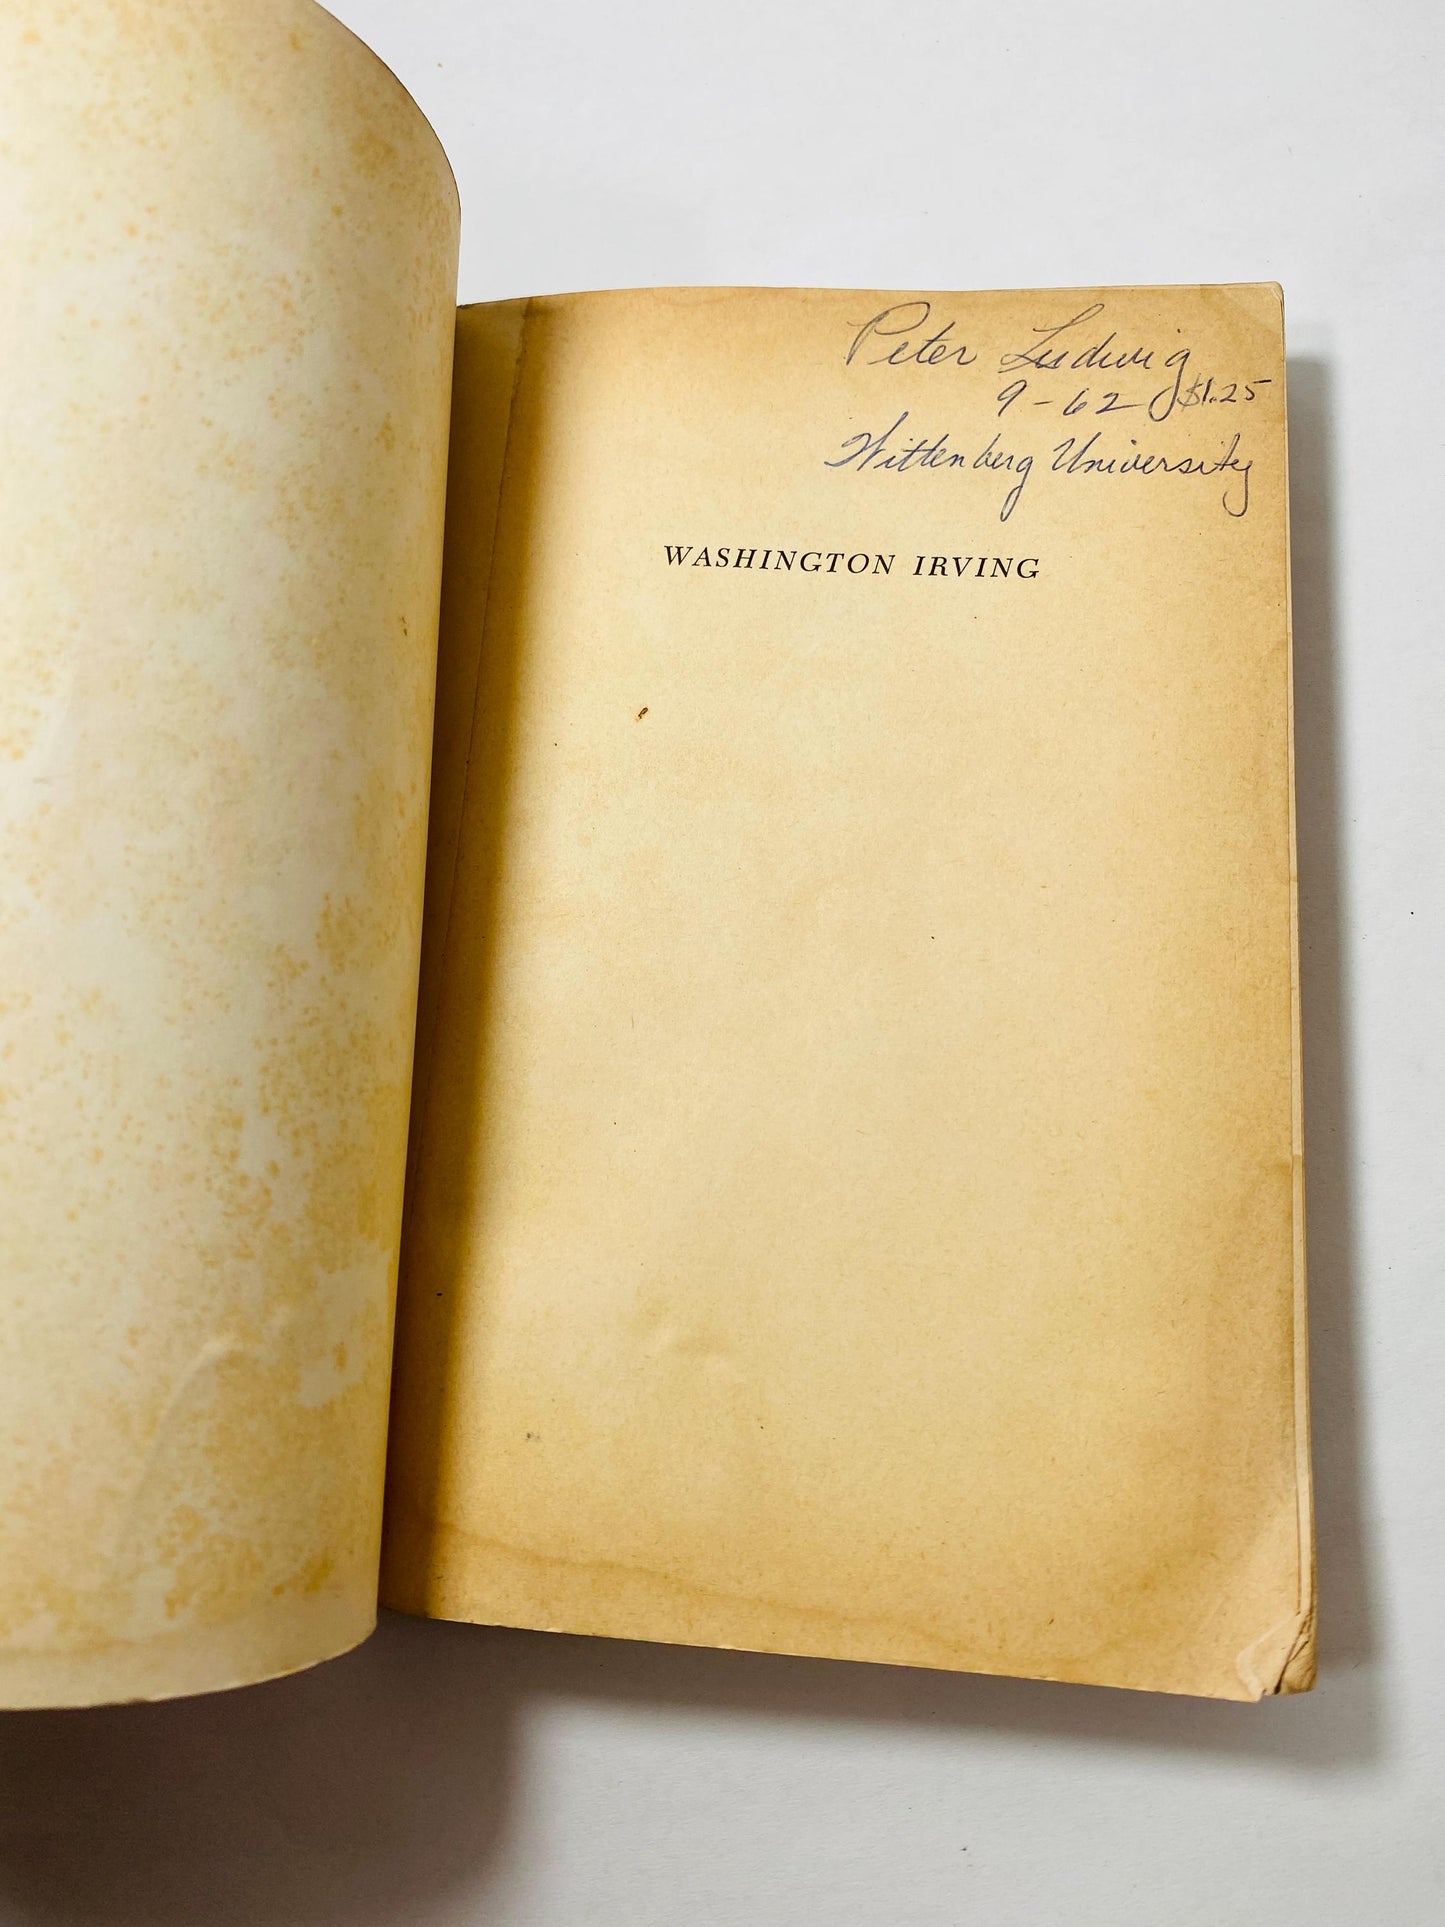 Peter Ludwig
9-62 $1.25
Wittenberg University
WASHINGTON IRVING